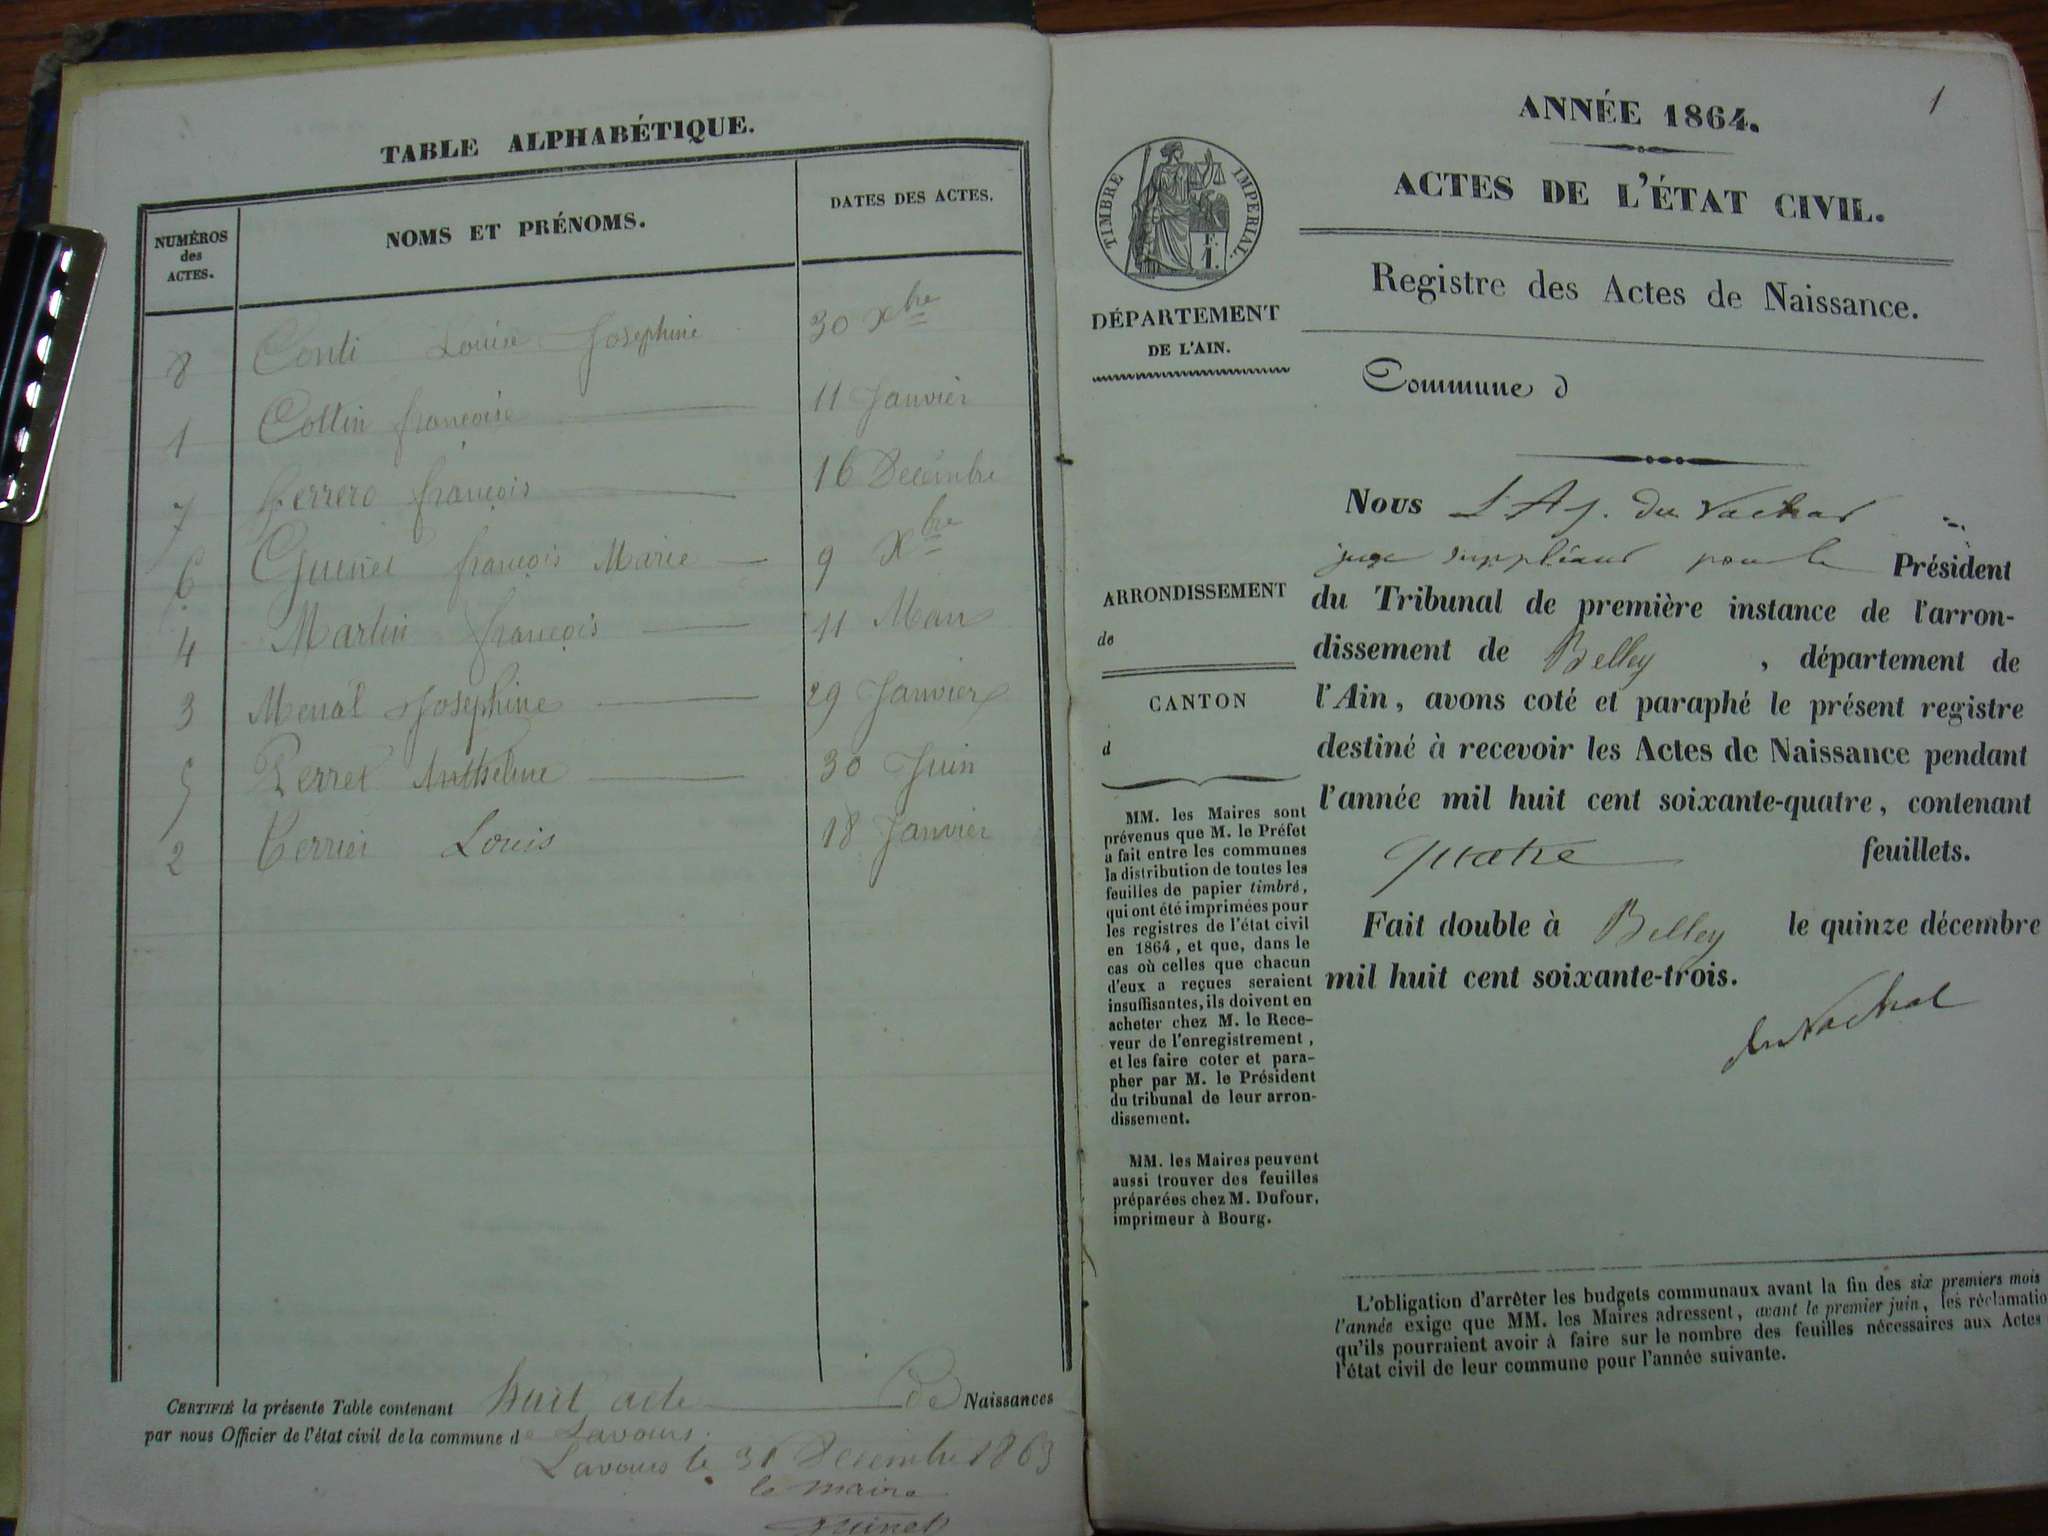 TABLE ALPHABÉTIQUE.
NUMÉROS
des
ACTES.
NOMS ET PRÉNOMS.
DATES DES ACTES.
8 Conti Louise Josephine 30 Xbre
1 Cottin françoise 11 Janvier
7 ferrero françois 16 Decembre
6 Guinet françois Marie 9 Xbre
4 Martin françois 11 Mars
3 Josephine 29 Janvier
5 Perret Anthelme 30 Juin
2 Terrier Louis 18 Janvier
CERTIFIÉ la présente Table contenant huit acte de Naissances
par nous Officier de l'état civil de la commune de Lavours.
Lavours le 31 Decembre 1863
le maire
Guinet
1
ANNÉE 1864.
ACTES DE L'ÉTAT CIVIL.
Registre des Actes de Naissance.
TIMBRE IMPERIAL.
F.
1.
DÉPARTEMENT
DE L'AIN.
Commune d
Nous du Vachat
juge suppléant pour le Président
du Tribunal de première instance de l'arron-
dissement de Belley , département de
l'Ain, avons coté et paraphé le présent registre
destiné à recevoir les Actes de Naissance pendant
l'année mil huit cent soixante-quatre, contenant
quatre feuillets.
Fait double à Belley le quinze décembre
mil huit cent soixante-trois.
du Vachat
ARRONDISSEMENT
de
CANTON
d
MM. les Maires sont
prévenus que M. le Préfet
a fait entre les communes
la distribution de toutes les
feuilles de papier timbré,
qui ont été imprimées pour
les registres de l'état civil
en 1864, et que, dans le
cas où celles que chacun
d'eux a reçues seraient
insuffisantes, ils doivent en
acheter chez M. le Rece-
veur de l'enregistrement,
et les faire coter et para-
pher par M. le Président
du tribunal de leur arron-
dissement.
MM. les Maires peuvent
aussi trouver des feuilles
préparées chez M. Dufour,
imprimeur à Bourg.
L'obligation d'arrêter les budgets communaux avant la fin des six premiers mois
l'année exige que MM. les Maires adressent, avant le premier juin, les réclamatio
qu'ils pourraient avoir à faire sur le nombre des feuilles nécessaires aux Actes
l'état civil de leur commune pour l'année suivante.